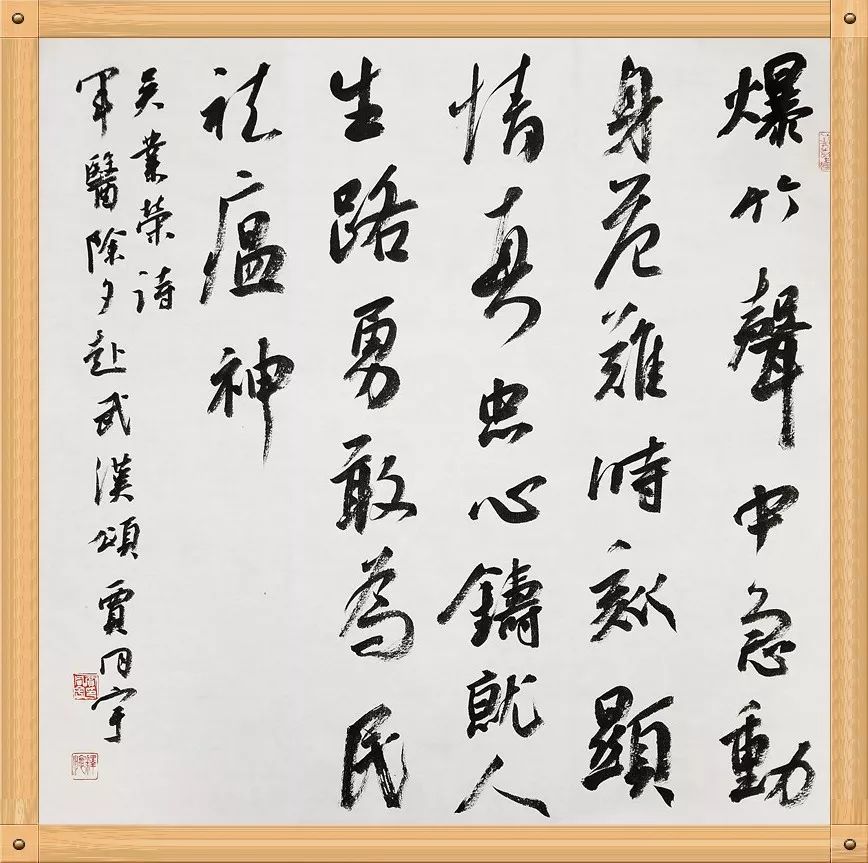 爆竹聲中急動
身危難時刻顯
情真忠心鑄就人
生路勇敢為民
祛瘟神
吴業榮詩
軍醫除夕赴武漢頌賈同宇